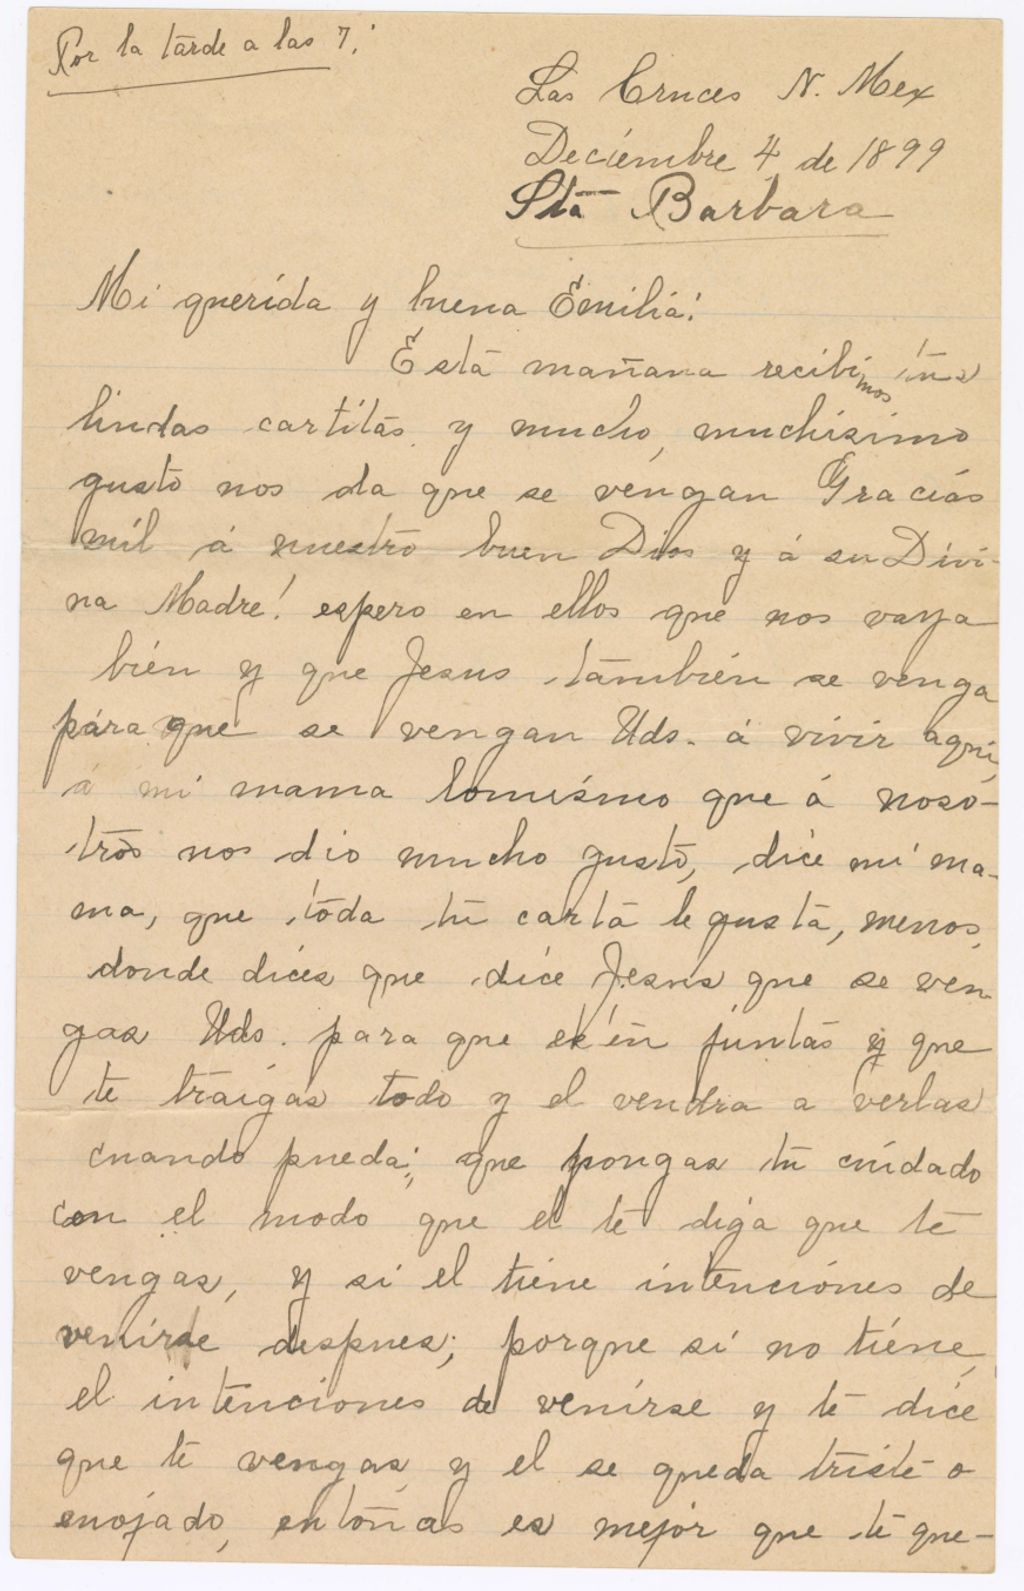 Por la tarde a las 7.
Las Cruces N. Mex
Deciembre 4 de 1899
Sta Barbara
Mi querida y buena Emilia:
Esta mañana recibimos tus
lindas cartitas y mucho, muchisimo
gusto nos da que se vengan Gracias
mil á nuestro buen Dios y á su Divi-
na Madre! espero en ellos que nos vaya
bién y que Jesus también se venga
para que se vengan Uds. á vivir aqui,
á mi mama lo mismo que á noso-
tros nos dio mucho gusto, dice mi ma-
ma, que toda tu carta le gusta, menos,
donde dices que dice Jesus que se ven-
gas Uds. para que estén juntas y que
te traigas todo y el vendra a verlas
cuando pueda; que pongas tu cuidado
con el modo que el te diga que te
vengas, y si el tiene intenciónes de
venirse despues; porque si no tiéne
el intenciones de venirse y te dice
que te vengas y el se queda triste o
enojado, entonces es mejor que te que-